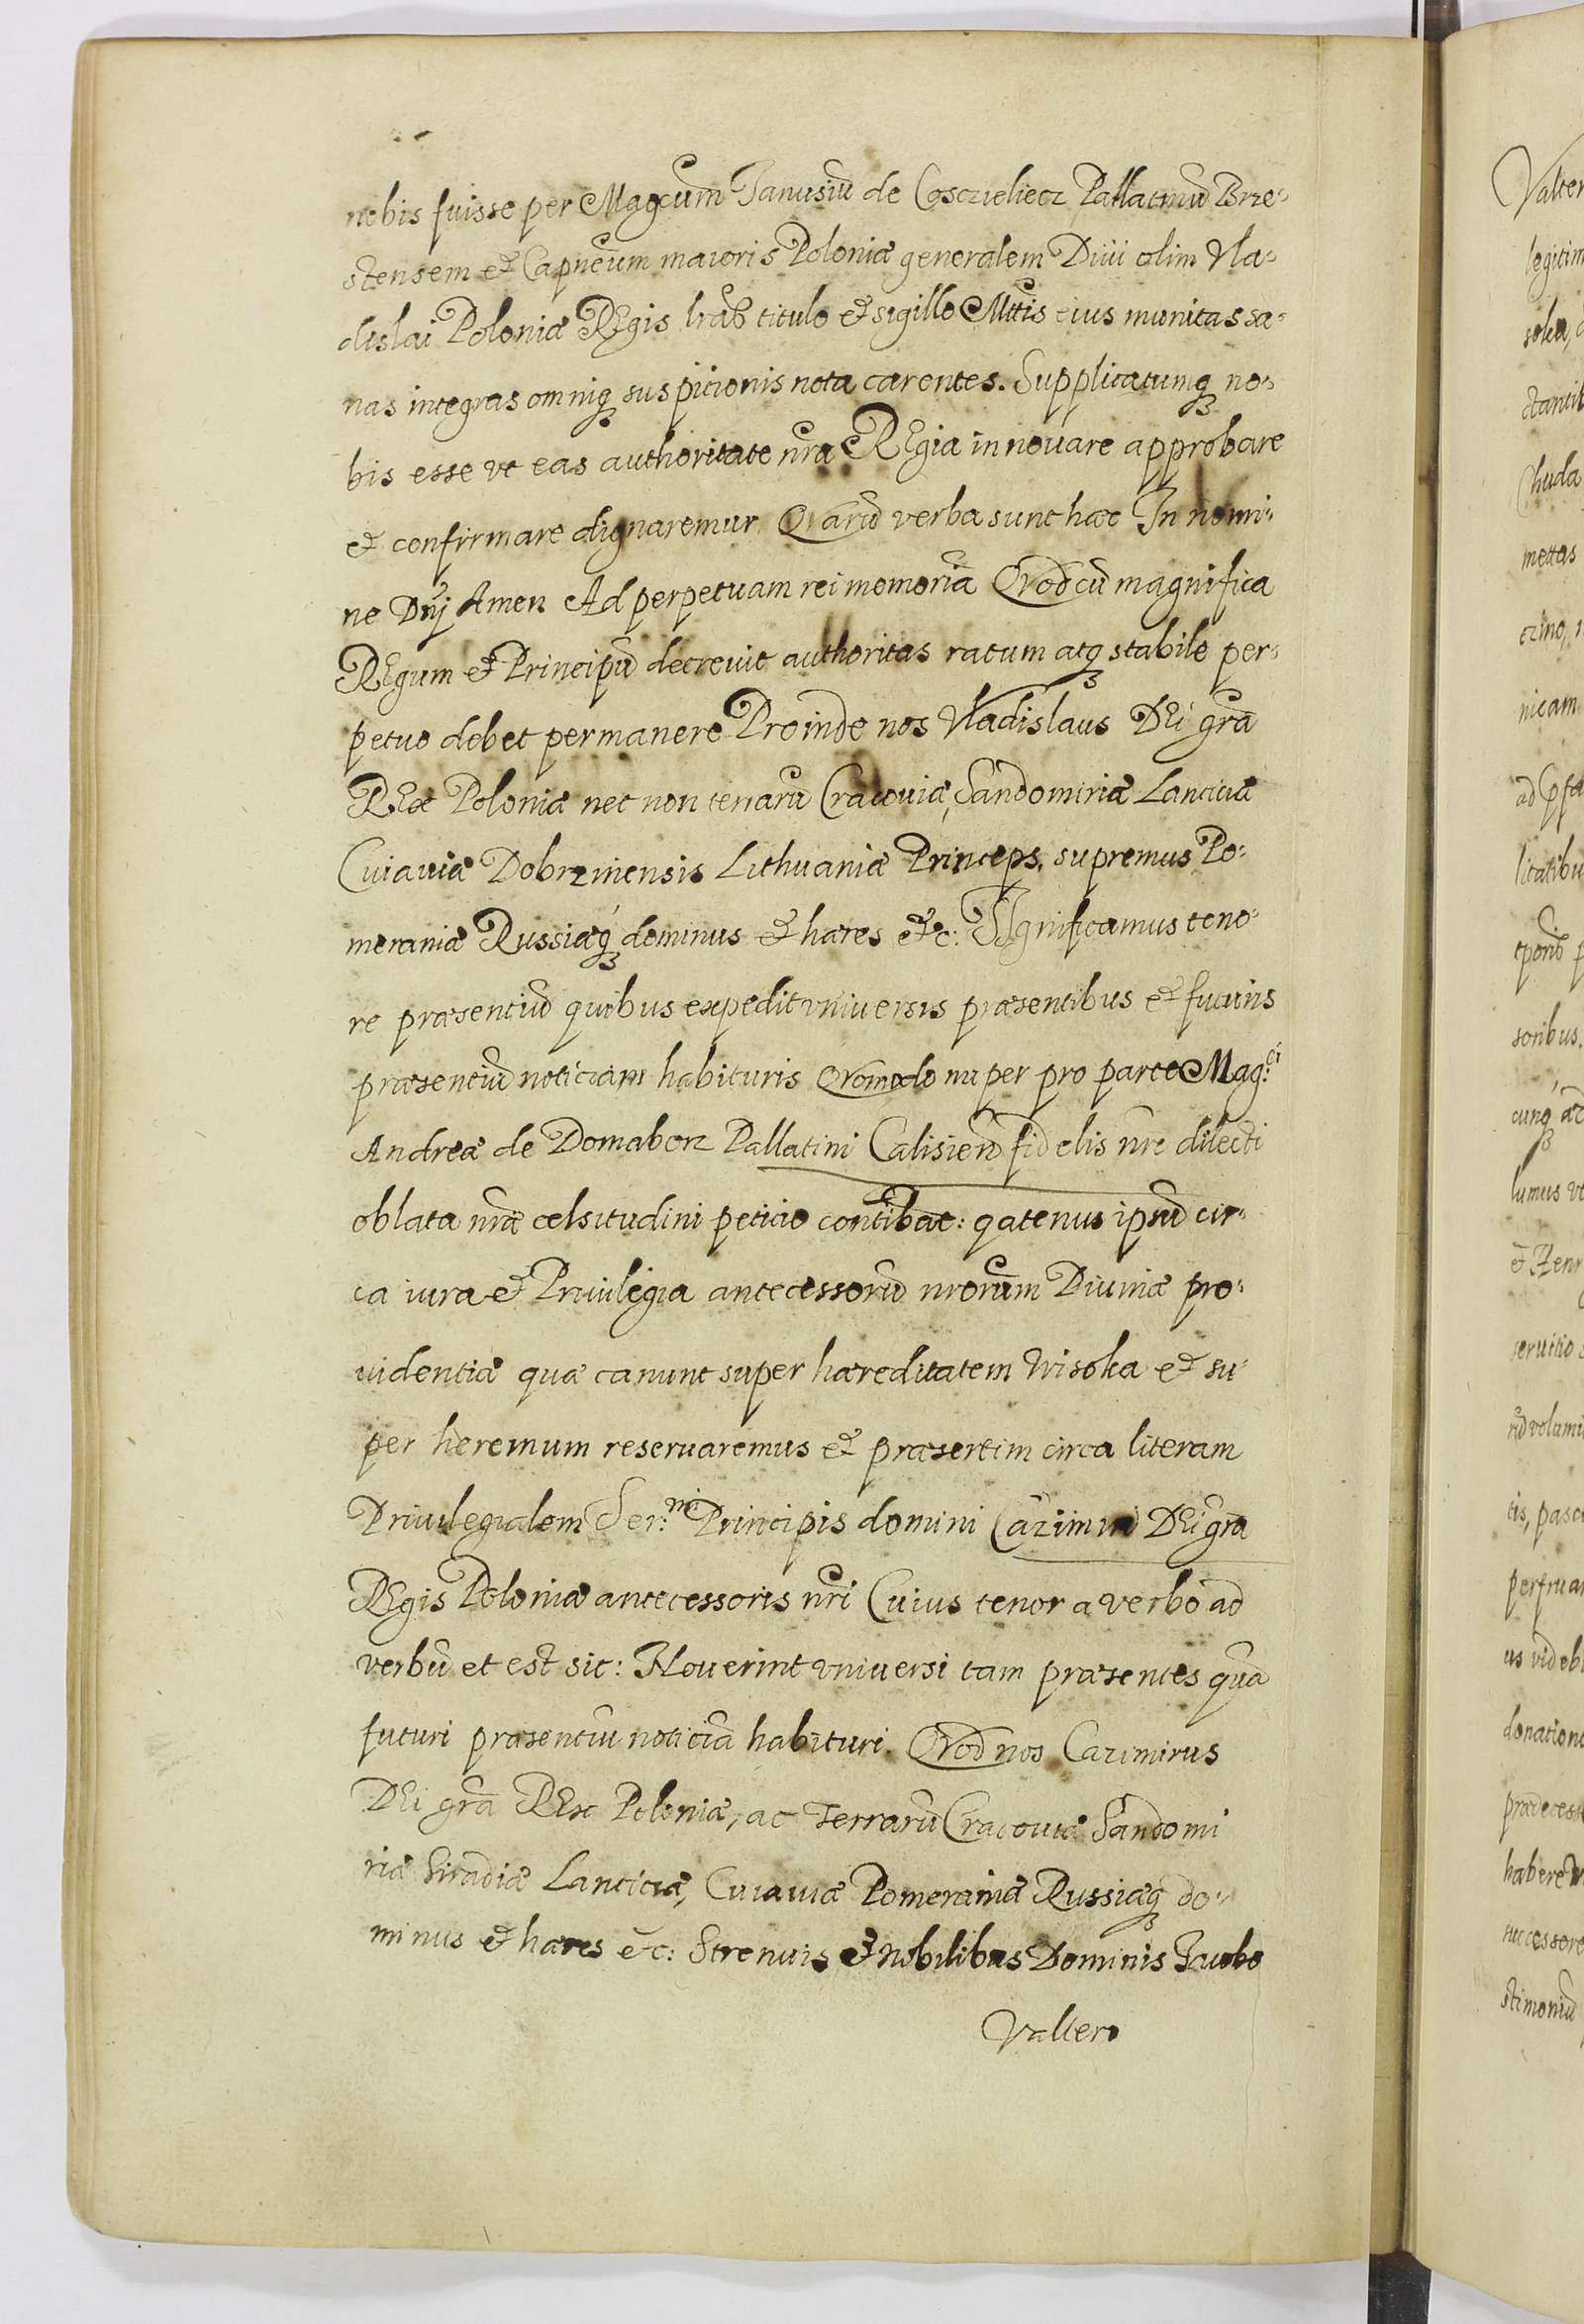 nobis fuisse per Magcum Janusiū de Cosczieliecz Pallatinū Brze-
stensem et Capneum maioris Poloniæ generalem Diui olim Vla-
dislai Poloniæ REgis lras titulo et sigillo Mttis eius munitas sa-
nas integras omniq suspicionis nota carentes. Supplicatumq no-
bis esse vt eas authoritate nra REgia innouare approbare
et confirmare dignaremur Quarū verba sunt hæc In nomi-
ne Dnj Amen Ad perpetuam rei memoriā Quod cū magnifica
REgum et Principū decreuit authoritas ratum atq stabile per-
petuo debet permanere Proinde nos Vladislaus DEi gra
REx Poloniæ nec non terrarū Cracouiæ, Sandomiriæ Lanciciæ
Cuiauiæ Dobrzinensis Lithuaniæ Princeps, supremus Po-
meraniæ Russiæq dominus et hæres etc: SIgnificamus teno-
re præsentiū quibus expedit vniuersis præsentibus et futuris
præsentiū noticiam habituris Quomodo nuper pro parte Mag:ci
Andreæ de Domaborz Pallatini Calisieñ fidelis nre dilecti
oblata nræ celsitudini peticio contibat: qatenus ipsū cir-
ca iura et Priuilegia antecessorū nrorum Diuinæ pro-
uidentiæ quæ canunt super hæreditatem Wisoka et su-
per heremum reseruaremus et præsertim circa literam
Priuilegialem Ser:mi Principis domini Cazimiri DEi gra
REgis Poloniæ antecessoris nri Cuius tenor a verbo ad
verbū et est sic: Nouerint vniuersi tam præsentes quā
futuri præsentiū noticiā habituri. Quod nos Cazimirus
DEi gra REx Poloniæ, ac Terrarū Cracouiæ Sandomi
riæ Siradiæ Lanciciæ, Cuiauiæ Pomeraniæ Russiæq do-
minus et hæres etc: Strenuis et Nobilibus Dominis Jacobo
Valtero
Valter
legitim
soka,
ctantib
Chuda
mettas
czino,
nicam
ad
litatibu
tporib p
soribus.
cunq ac
lumus vt
et Henr
seruitio
rū volumu
tis, pasc
perfrua
us videbi
donatione
prædecess
habere
successore
stimoniū